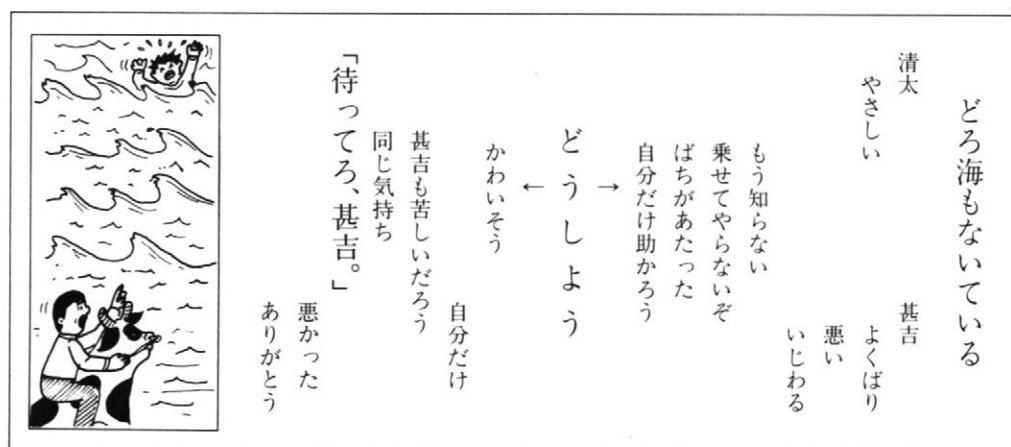 どろ海もないている
清太
やさしい
甚吉
よくばり
悪い
いじわる
もう知らない
乗せてやらないぞ
ばちがあたった
自分だけ助かろう
→
どうしよう
←
かわいそう
自分だけ
甚吉も苦しいだろう
同じ気持ち
「待ってろ、甚吉。」
悪かった
ありがとう